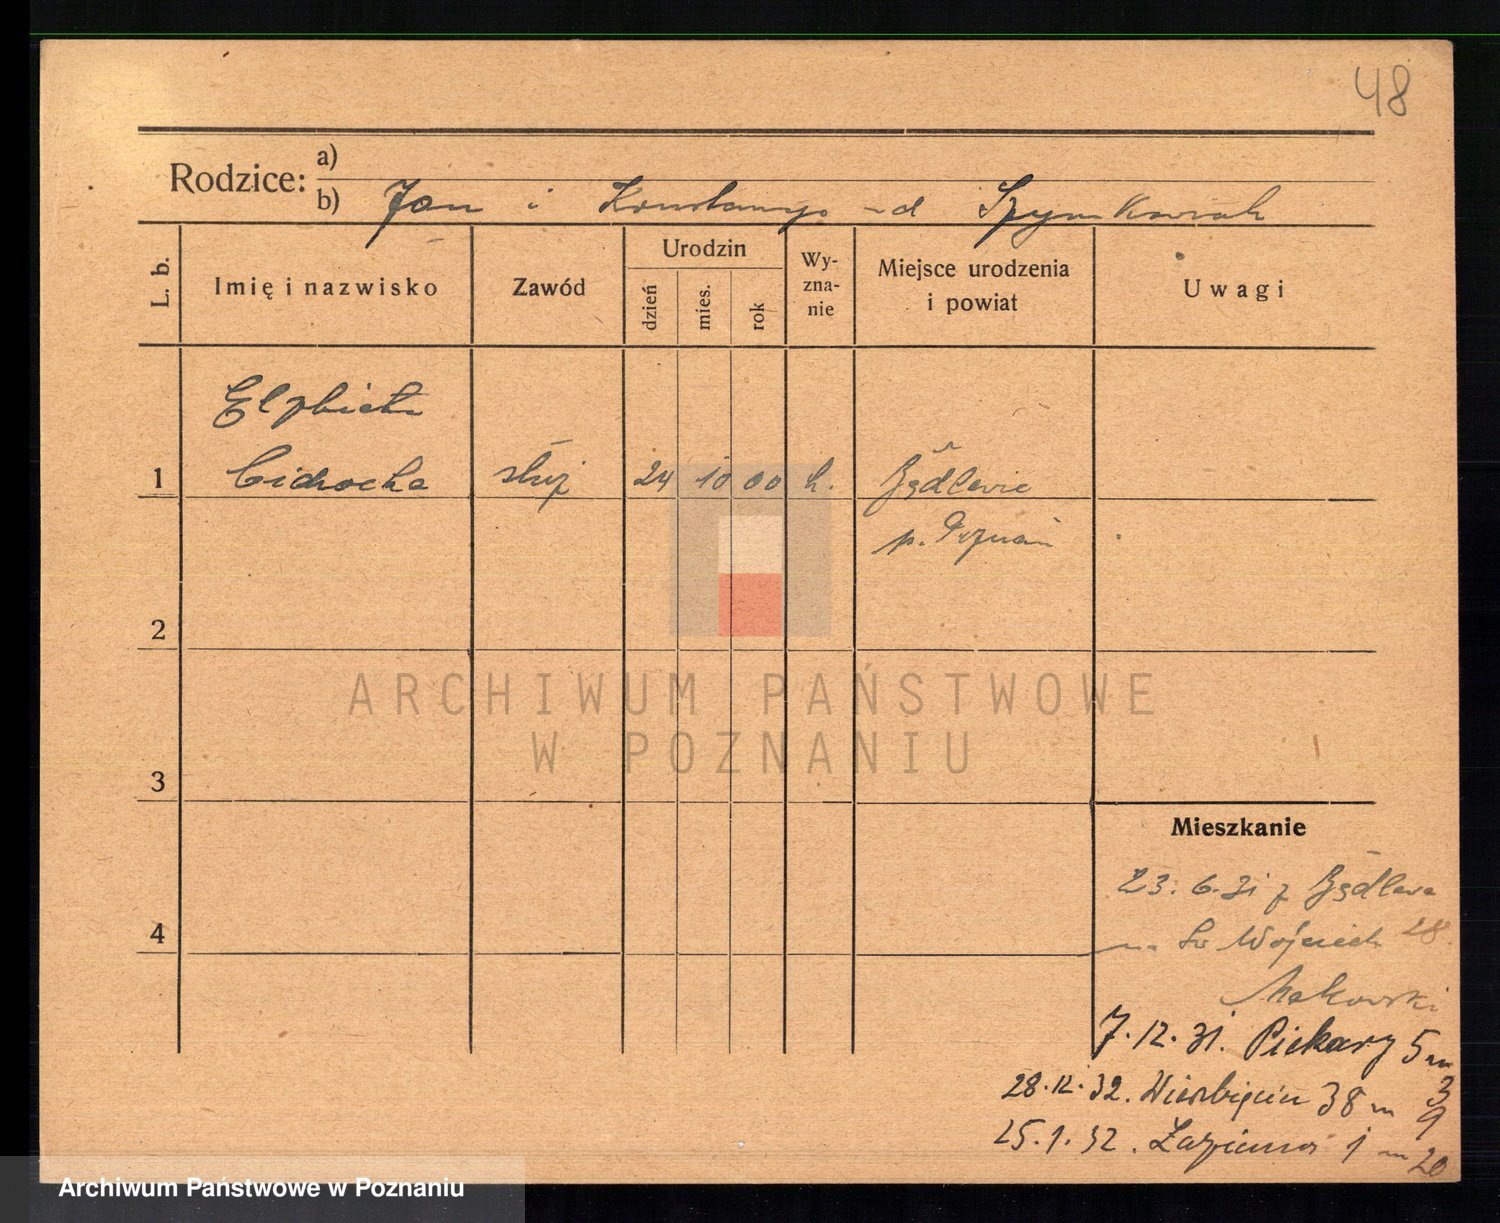 48
Rodzice:
a)
b) Jan i Konstancja z d Szymkowiak
L. b.
Imię i nazwisko
Zawód
Urodzin
dzień
mies.
rok
Wy-
zna-
nie
Miejsce urodzenia
i powiat
Uwagi
Elżbieta
1 Cichocka służ 24 10 00 k. Będlewie
p. Poznań
2
3
4
ARCHIWUM PAŃSTWOWE
W POZNANIU
Mieszkanie
23. 6. 31 z Będlewa
na Św Wojciech 28.
Makowski
7. 12. 31. Piekary 5 m 3
28. 12. 32. Wierzbięcin 38 m 9
25. 1. 32. 1 m 20
Archiwum Państwowe w Poznaniu